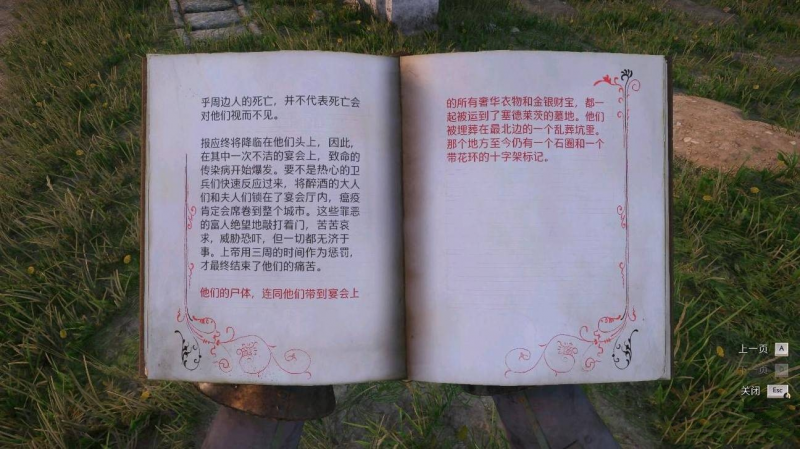 乎周边人的死亡，并不代表死亡会
对他们视而不见。
报应终将降临在他们头上，因此，
在其中一次不洁的宴会上，致命的
传染病开始爆发。要不是热心的卫
兵们快速反应过来，将醉酒的大人
们和夫人们锁在了宴会厅内，瘟疫
肯定会席卷到整个城市。这些罪恶
的富人绝望地敲打着门，苦苦哀
求，威胁恐吓，但一切都无济于
事。上帝用三周的时间作为惩罚，
才最终结束了他们的痛苦。
他们的尸体，连同他们带到宴会上
的所有奢华衣物和金银财宝，都一
起被运到了塞德莱茨的墓地。他们
被埋葬在最北边的一个乱葬坑里。
那个地方至今仍有一个石圈和一个
带花环的十字架标记。
上一页 A
关闭 Esc